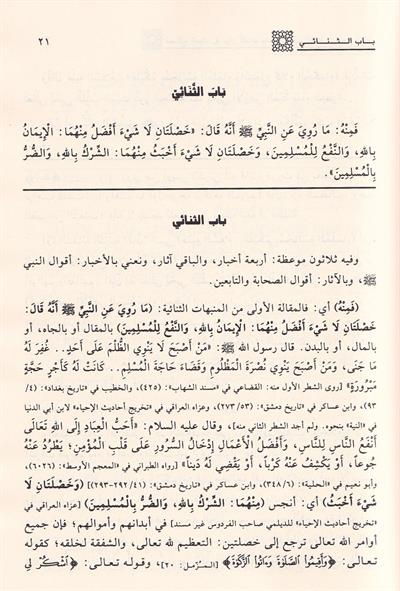 باب الثنائي ٢١
بَابُ الثُّنَائِيّ
فَمِنْهُ: مَا رُوِيَ عَنِ النَّبِيِّ ﷺ أَنَّهُ قَالَ: «خَصْلَتَانِ لَا شَيْءَ أَفْضَلُ مِنْهُمَا: الْإِيمَانُ
بِاللهِ، وَالنَّفْعُ لِلْمُسْلِمِينَ، وَخَصْلَتَانِ لَا شَيْءَ أَخْبَثُ مِنْهُمَا: الشِّرْكُ بِاللهِ، وَالضُّرُّ
بِالْمُسْلِمِينَ».
باب الثنائي
وفيه ثلاثون موعظة: أربعة أخبار، والباقي آثار، ونعني بالأخبار: أقوال النبي
ﷺ، وبالآثار: أقوال الصحابة والتابعين.
(فَمِنْهُ) أي: فالمقالة الأولى من المنبهات الثنائية: (مَا رُوِيَ عَنِ النَّبِيِّ ﷺ أَنَّهُ قَالَ:
خَصْلَتَانِ لَا شَيْءَ أَفْضَلُ مِنْهُمَا: الْإِيمَانُ بِاللهِ، وَالنَّفْعُ لِلْمُسْلِمِينَ) بالمقال أو بالجاه، أو
بالمال، أو بالبدن. قال رسول الله ﷺ: «مَنْ أَصْبَحَ لَا يَنْوِي الظُّلْمَ عَلَى أَحَدٍ.. غُفِرَ لَهُ
مَا جَنَى، وَمَنْ أَصْبَحَ يَنْوِي نُصْرَةَ الْمَظْلُومِ وَقَضَاءَ حَاجَةِ الْمُسْلِمِ.. كَانَتْ لَهُ كَأَجْرِ حَجَّةٍ
مَبْرُورَةٍ» [روى الشطر الأول منه: القضاعي في «مسند الشهاب»: (٤٢٥)، والخطيب في «تاريخ بغداد»: (٤/
٩٣)، وابن عساكر في «تاريخ دمشق»: (٥٣/ ٢٧٣)، وعزاه العراقي في «تخريج أحاديث الإحياء» لابن أبي الدنيا
في «النية» بنحوه. ولم أجد الشطر الثاني منه]، وقال عليه السلام: «أَحَبُّ الْعِبَادِ إِلَى اللهِ تَعَالَى
أَنْفَعُ النَّاسِ لِلنَّاسِ، وَأَفْضَلُ الْأَعْمَالِ إِدْخَالُ السُّرُورِ عَلَى قَلْبِ الْمُؤْمِنِ؛ يَطْرُدُ عَنْهُ
جُوعاً، أَوْ يَكْشِفُ عَنْهُ كَرْباً، أَوْ يَقْضِي لَهُ دَيْناً» [رواه الطبراني في «المعجم الأوسط»: (٦٠٢٦)،
وأبو نعيم في «الحلية»: (٦/ ٣٤٨)، وابن عساكر في «تاريخ دمشق»: (٤١/ ٢٩٢-٢٩٣)] (وَخَصْلَتَانِ لَا
شَيْءَ أَخْبَثُ) أي: أنجس (مِنْهُمَا: الشِّرْكُ بِاللهِ، وَالضُّرُّ بِالْمُسْلِمِينَ) [عزاه العراقي في
«تخريج أحاديث الإحياء» للديلمي صاحب الفردوس غير مسند] في أبدانهم وأموالهم؛ فإن جميع
أوامر الله تعالى ترجع إلى خصلتين: التعظيم لله تعالى، والشفقة لخلقه؛ كقوله
تعالى: ﴿وَأَقِيمُوا الصَّلَاةَ وَءَاتُوا الزَّكَاةَ﴾ [المزمل: ٢٠]، وقوله تعالى: ﴿أَشْكُرْ لِي